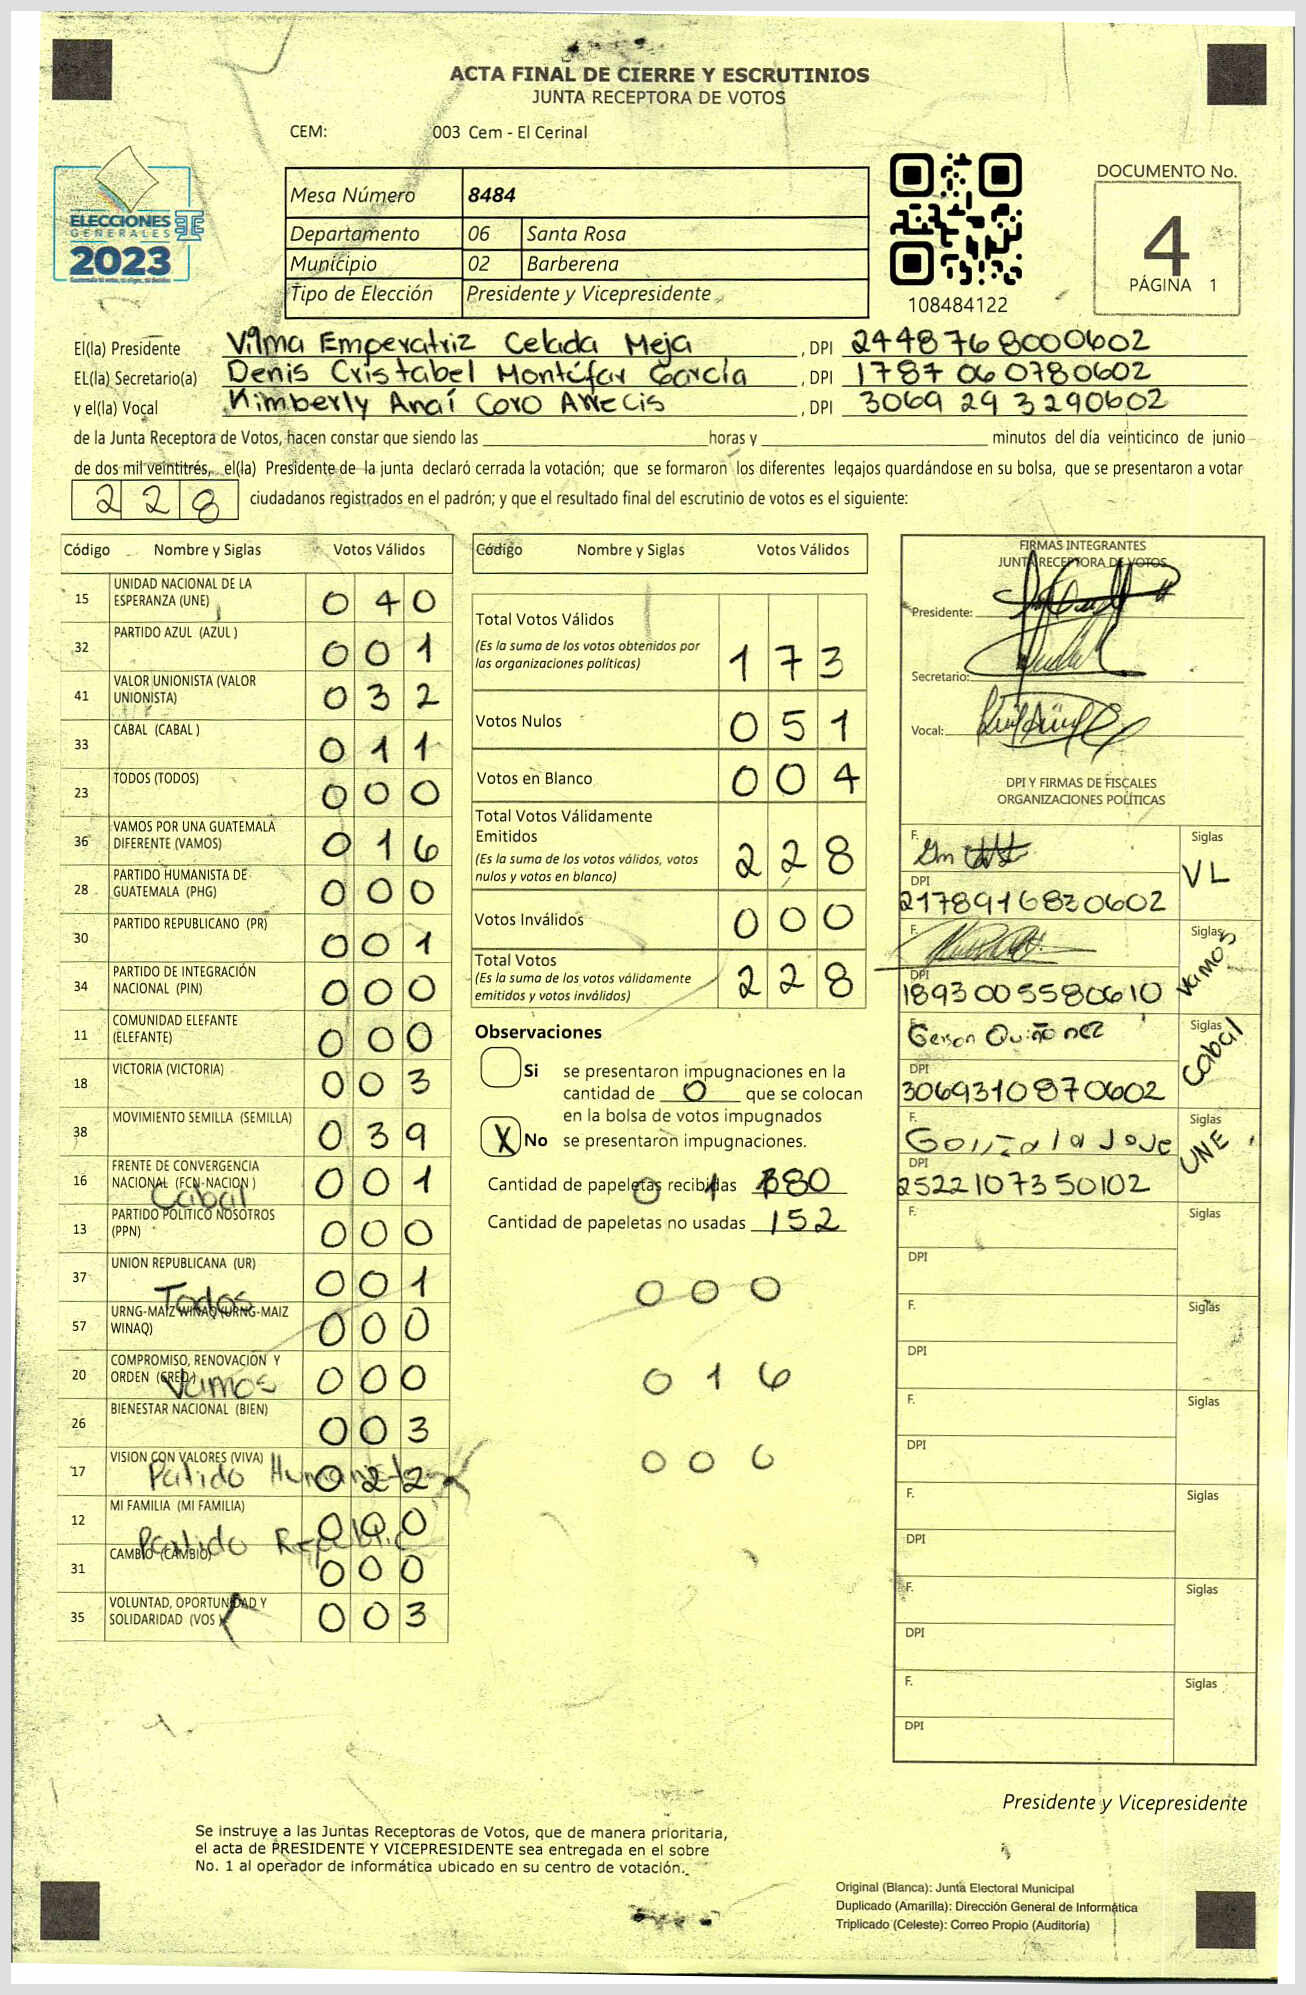 ACTA FINAL DE CIERRE Y ESCRUTINIOS
JUNTA RECEPTORA DE VOTOS
CEM: 003 Cem - El Cerinal
ELECCIONES
GENERALES
2023
Mesa Número 8484
Departamento 06 Santa Rosa
Municipio 02 Barberena
Tipo de Elección Presidente y Vicepresidente
108484122
DOCUMENTO No.
4
PÁGINA 1
El(la) Presidente Vilma Emperatriz Celada Meja , DPI 2448768000602
EL(la) Secretario(a) Denis Cristabel Montúfar García , DPI 1787060780602
y el(la) Vocal Kimberly Anaí Coro Arrecis , DPI 3069293290602
de la Junta Receptora de Votos, hacen constar que siendo las horas y minutos del día veinticinco de junio
de dos mil veintitrés, el(la) Presidente de la junta declaró cerrada la votación; que se formaron los diferentes legajos quardándose en su bolsa, que se presentaron a votar
228 ciudadanos registrados en el padrón; y que el resultado final del escrutinio de votos es el siguiente:
Código Nombre y Siglas Votos Válidos
15 UNIDAD NACIONAL DE LA ESPERANZA (UNE) 040
32 PARTIDO AZUL (AZUL ) 001
41 VALOR UNIONISTA (VALOR UNIONISTA) 032
33 CABAL (CABAL ) 011
23 TODOS (TODOS) 000
36 VAMOS POR UNA GUATEMALA DIFERENTE (VAMOS) 016
28 PARTIDO HUMANISTA DE GUATEMALA (PHG) 000
30 PARTIDO REPUBLICANO (PR) 001
34 PARTIDO DE INTEGRACIÓN NACIONAL (PIN) 000
11 COMUNIDAD ELEFANTE (ELEFANTE) 000
18 VICTORIA (VICTORIA) 003
38 MOVIMIENTO SEMILLA (SEMILLA) 039
16 FRENTE DE CONVERGENCIA NACIONAL (FCN-NACION ) 001
Cabal
13 PARTIDO POLITICO NOSOTROS (PPN) 000
37 UNION REPUBLICANA (UR) 001
Todos
57 URNG-MAIZ WINAQ (URNG-MAIZ WINAQ) 000
20 COMPROMISO, RENOVACIÓN Y ORDEN (CREO) 000
Vamos
26 BIENESTAR NACIONAL (BIEN) 003
17 VISION CON VALORES (VIVA) 022
Patido
12 MI FAMILIA (MI FAMILIA) 000
Partido
31 CAMBIO (CAMBIO) 000
35 VOLUNTAD, OPORTUNIDAD Y SOLIDARIDAD (VOS ) 003
Código Nombre y Siglas Votos Válidos
Total Votos Válidos
(Es la suma de los votos obtenidos por
las organizaciones políticas) 173
Votos Nulos 051
Votos en Blanco 004
Total Votos Válidamente
Emitidos
(Es la suma de los votos válidos, votos
nulos y votos en blanco) 228
Votos Inválidos 000
Total Votos
(Es la suma de los votos válidamente
emitidos y votos inválidos) 228
Observaciones
Si se presentaron impugnaciones en la
cantidad de 0 que se colocan
en la bolsa de votos impugnados
X No se presentaron impugnaciones.
Cantidad de papeletas recibidas 380
0 1
Cantidad de papeletas no usadas 152
0 0 0
0 1 6
0 0 0
FIRMAS INTEGRANTES
JUNTA RECEPTORA DE VOTOS
Presidente:
Secretario:
Vocal:
DPI Y FIRMAS DE FISCALES
ORGANIZACIONES POLÍTICAS
F. Siglas VL
DPI 2178916830602
F. Siglas Vamos
DPI 1893005580610
F. Gerson Quiñonez Siglas Cabal
DPI 3069310870602
F. Siglas UNE
DPI 2522107350102
F. Siglas
DPI
F. Siglas
DPI
F. Siglas
DPI
F. Siglas
DPI
F. Siglas
DPI
F. Siglas
DPI
Presidente y Vicepresidente
Se instruye a las Juntas Receptoras de Votos, que de manera prioritaria,
el acta de PRESIDENTE Y VICEPRESIDENTE sea entregada en el sobre
No. 1 al operador de informática ubicado en su centro de votación.
Original (Blanca): Junta Electoral Municipal
Duplicado (Amarilla): Dirección General de Informática
Triplicado (Celeste): Correo Propio (Auditoría)